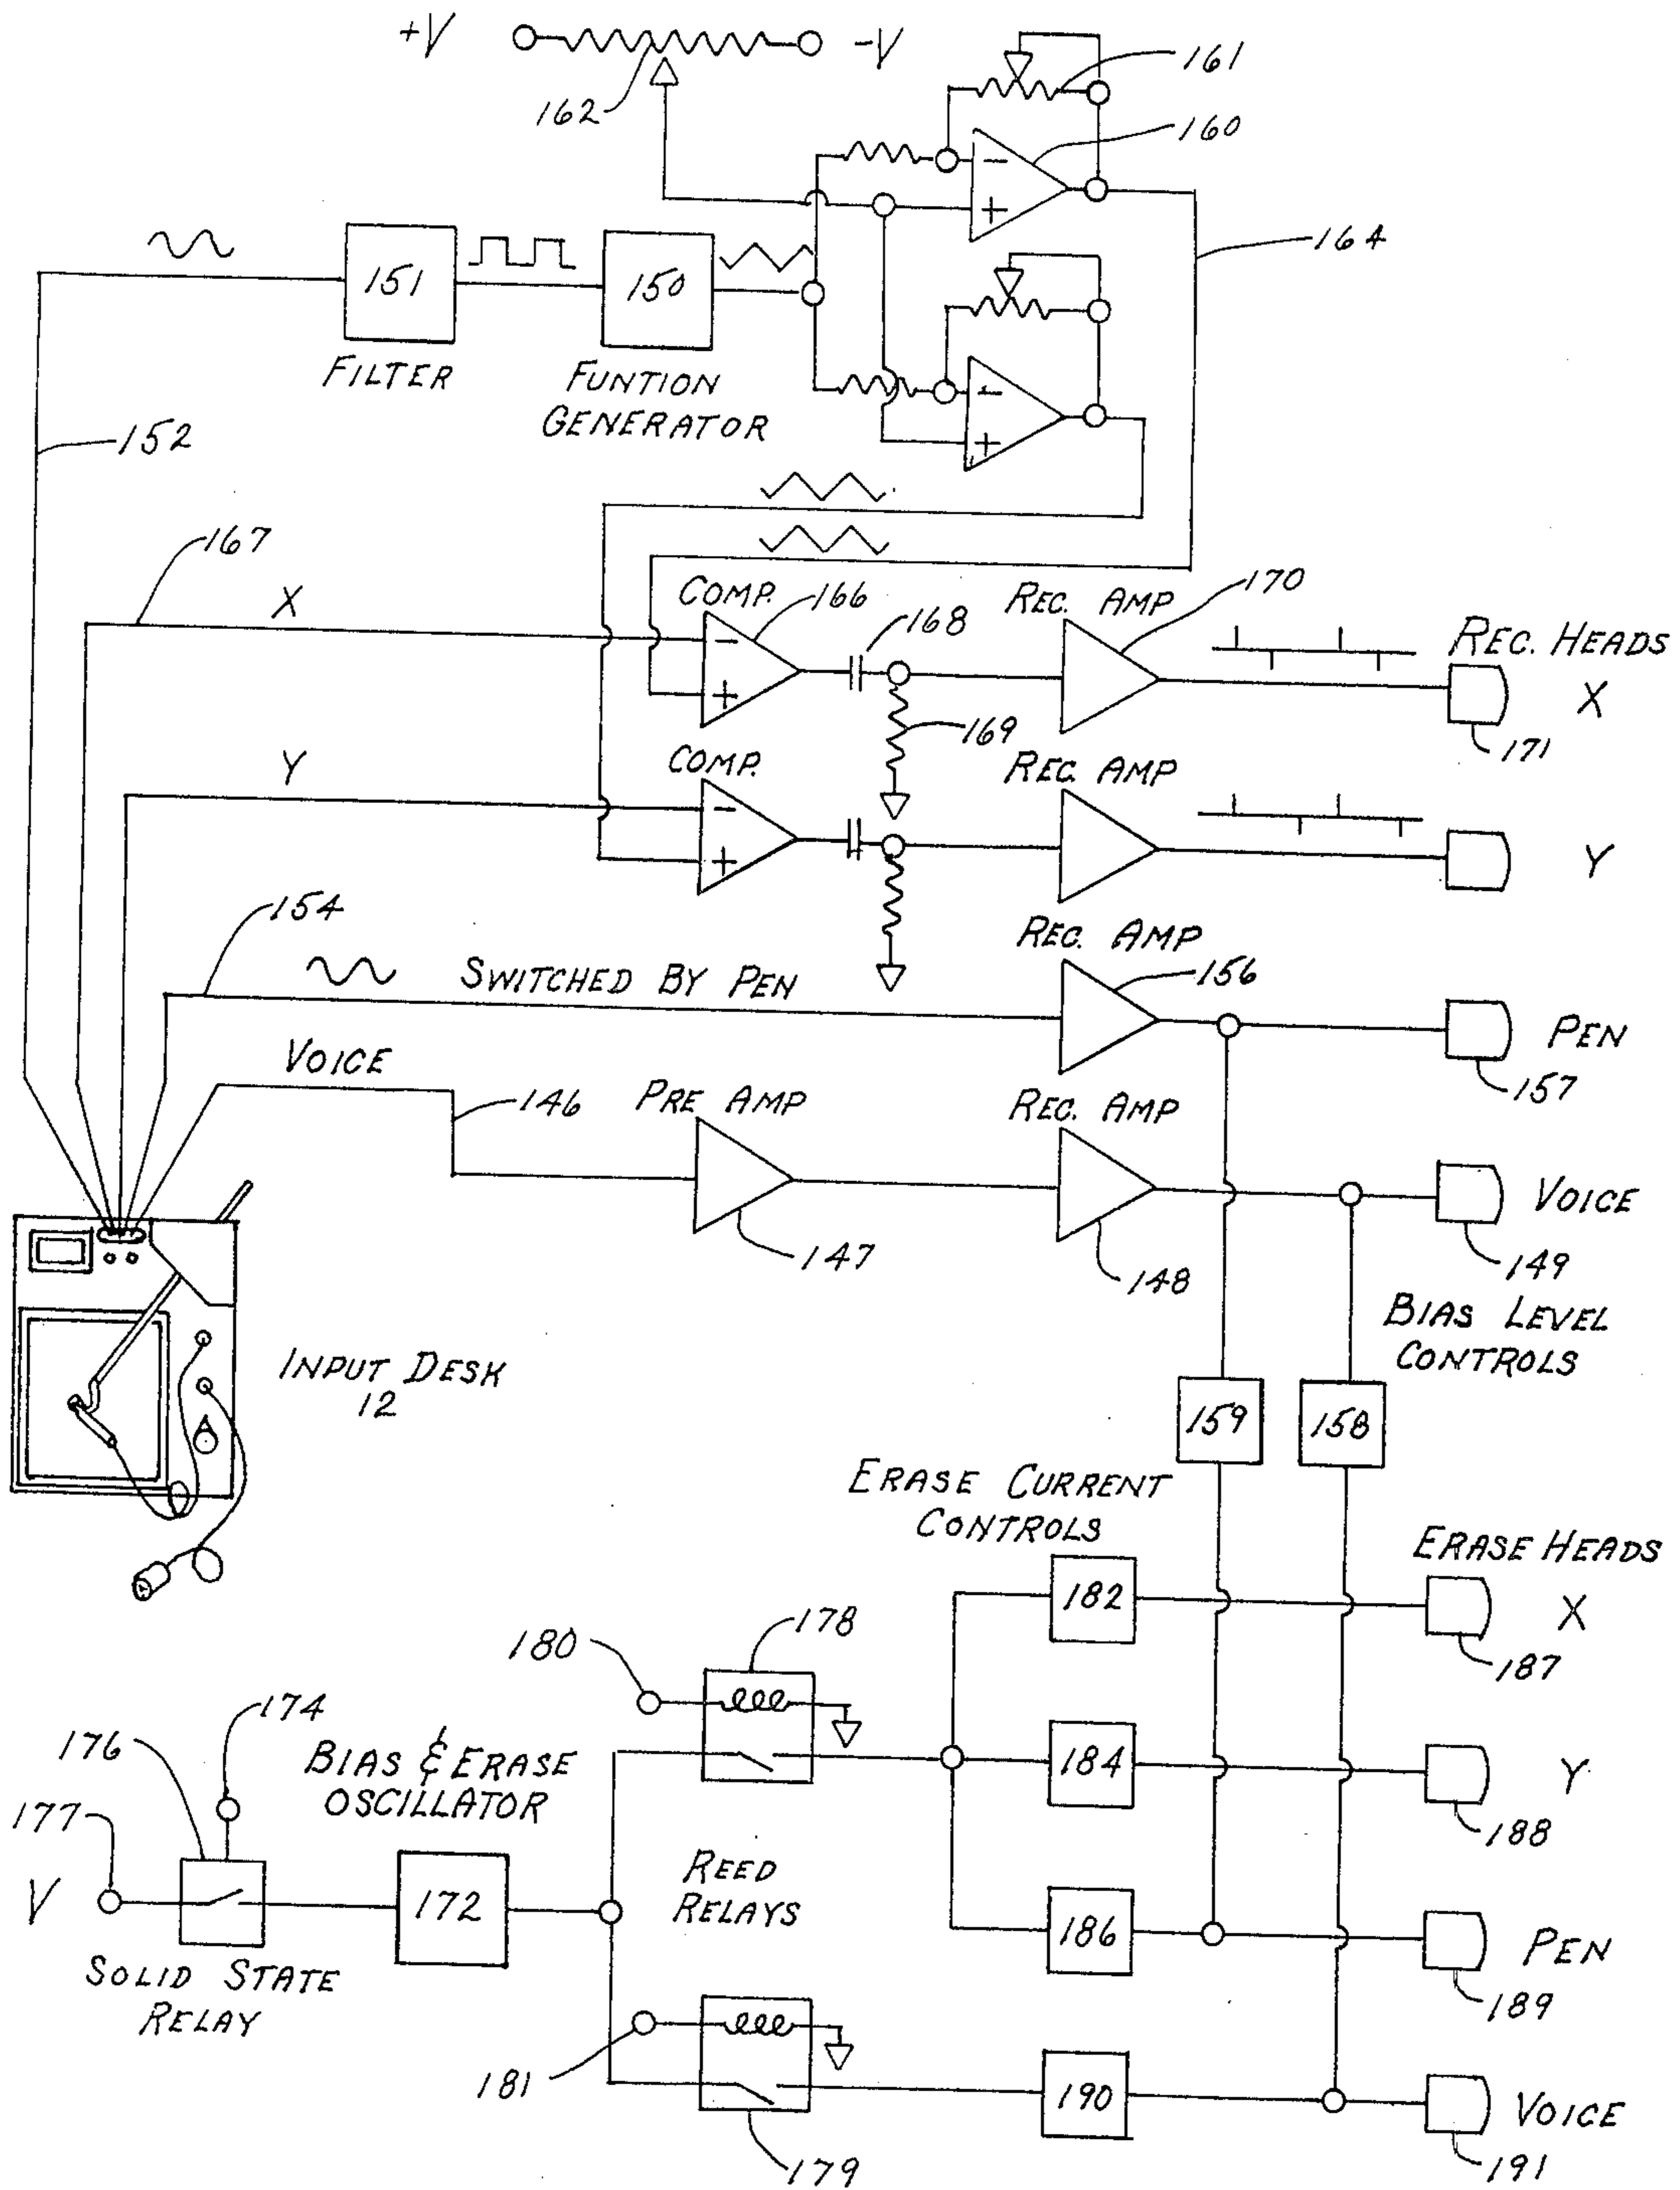 +V
-V
162
161
160
164
151
150
FILTER
FUNTION
GENERATOR
152
167
X
COMP.
166
168
REC. AMP
170
REC. HEADS
X
171
169
Y
COMP.
REC. AMP
Y
154
SWITCHED BY PEN
REC. AMP
156
PEN
157
VOICE
146
PRE AMP
147
REC. AMP
148
VOICE
149
BIAS LEVEL
CONTROLS
INPUT DESK
12
159
158
ERASE CURRENT
CONTROLS
ERASE HEADS
182
X
187
178
180
174
176
177
V
BIAS & ERASE
OSCILLATOR
184
Y
188
172
REED
RELAYS
186
PEN
189
SOLID STATE
RELAY
181
179
190
VOICE
191
-
+
-
+
-
+
-
+